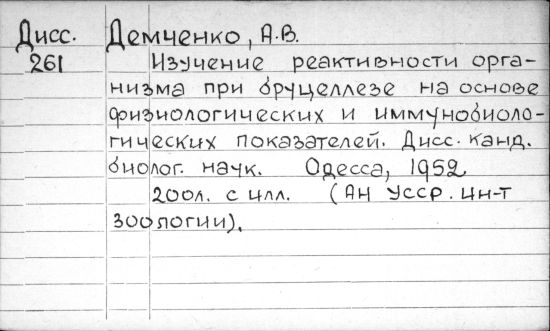 Дисс. Демченко, А.В.
261 Изучение реактивности орга-
низма при бруцеллезе на основе
физиологических и иммунобиоло-
гических показателей. Дисс. канд.
биолог. наук. Одесса, 1952
200л. с илл. (АН УССР. ин-т
зоологии).